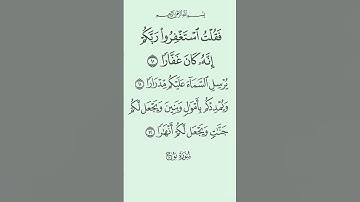 بِسْمِ ٱللَّهِ ٱلرَّحْمَٰنِ ٱلرَّحِيمِ
فَقُلْتُ ٱسْتَغْفِرُوا۟ رَبَّكُمْ
إِنَّهُۥ كَانَ غَفَّارًا ١٠
يُرْسِلِ ٱلسَّمَآءَ عَلَيْكُم مِّدْرَارًا ١١
وَيُمْدِدْكُم بِأَمْوَٰلٍ وَبَنِينَ وَيَجْعَل لَّكُمْ
جَنَّٰتٍ وَيَجْعَل لَّكُمْ أَنْهَٰرًا ١٢
سُورَةُ نُوحٍ